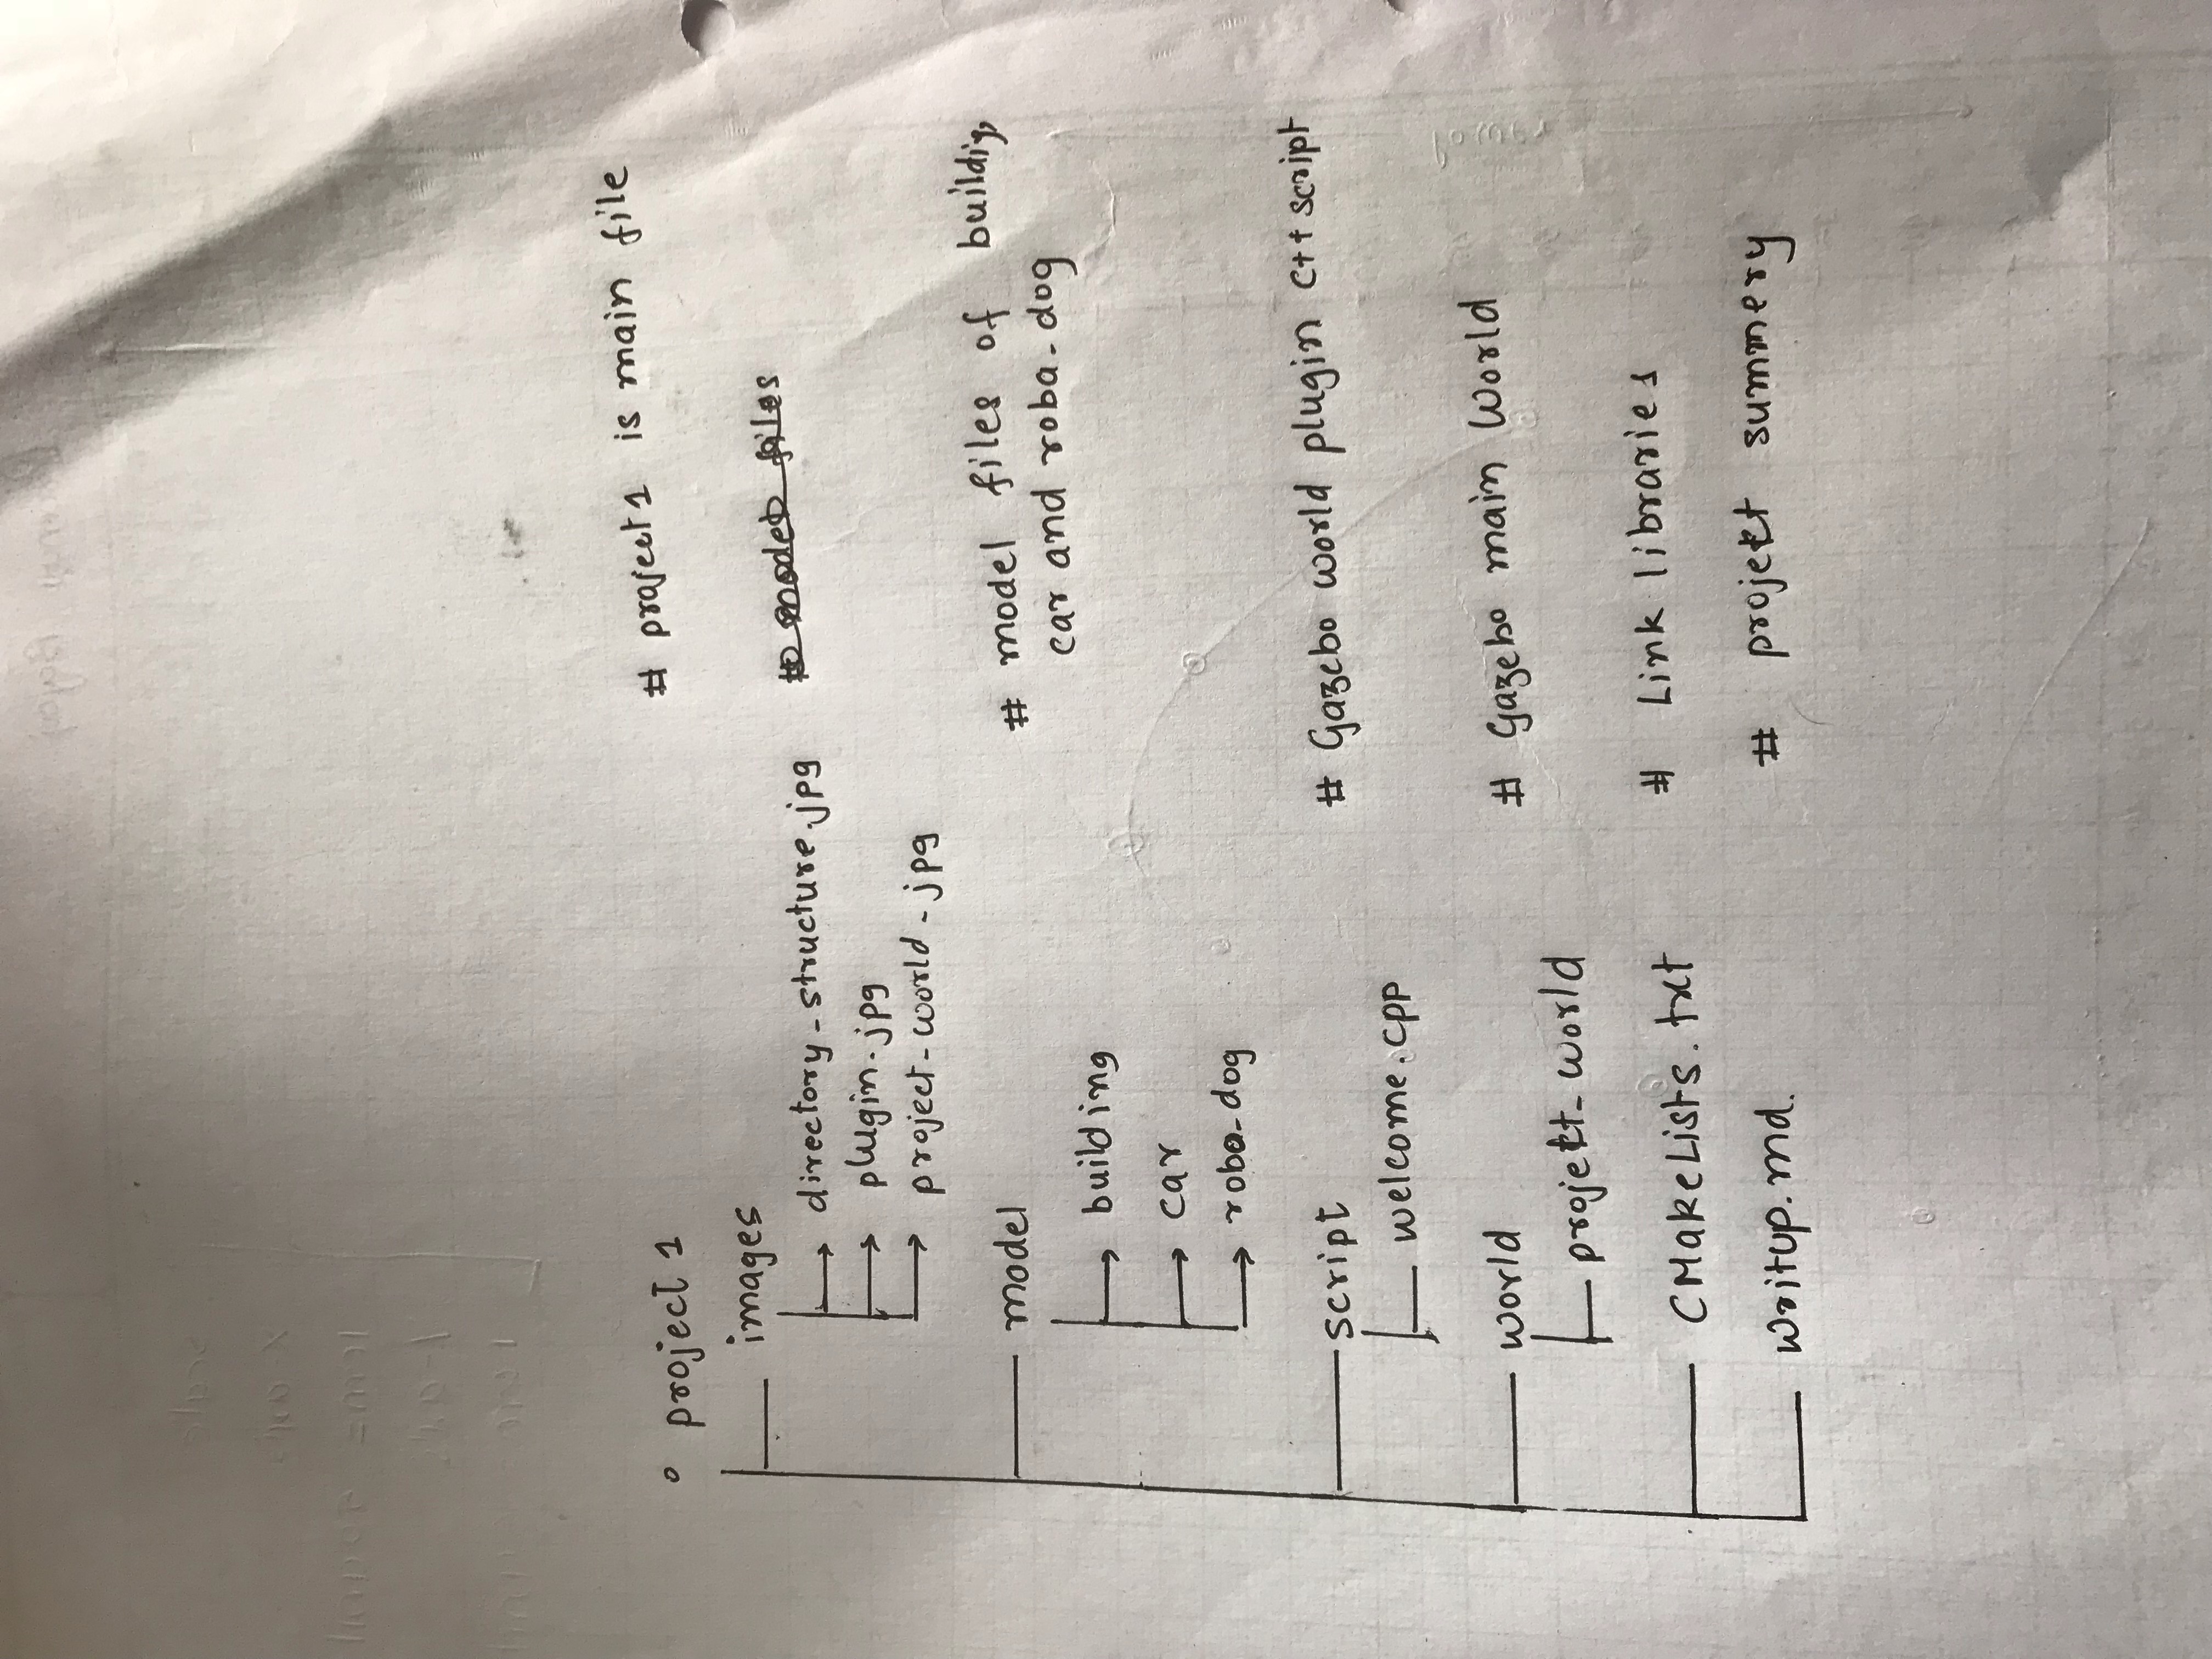 project 1 # project1 is main file
images
directory_structure.jpg # model files
plugin.jpg
project-world-jpg
model # model files of buildig,
car and roba-dog
building
car
roba-dog
script # Gazebo world plugin c++ script
welcome.cpp
world # Gazebo main World
project-world
CMakeLists.txt # Link libraries
Writup.md. # project summery